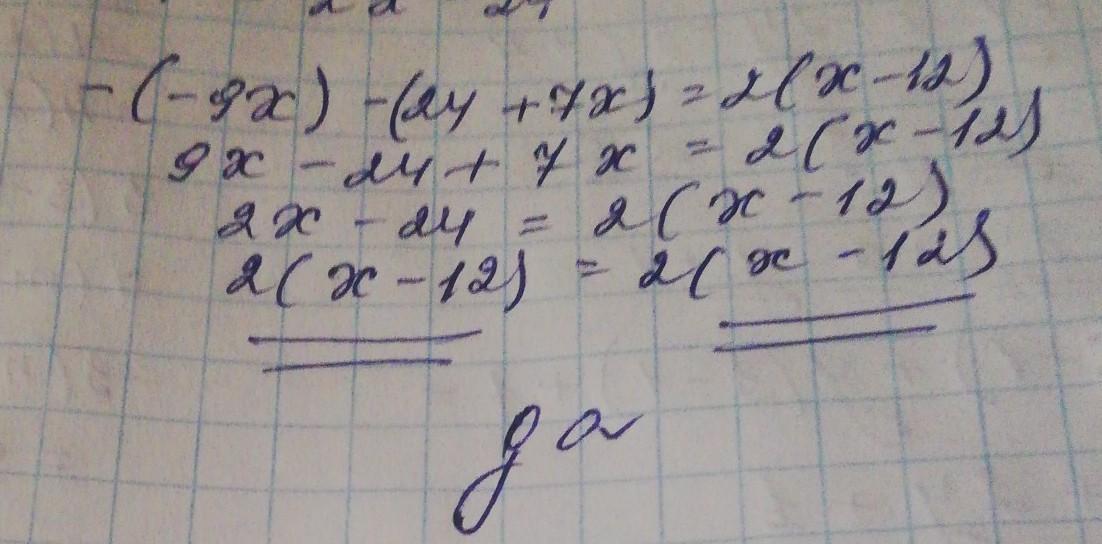 -(-9x) -(24 +7x) = 2(x-12)
9x - 24 + 7x = 2(x-12)
2x - 24 = 2(x-12)
2(x-12) = 2(x-12)
да